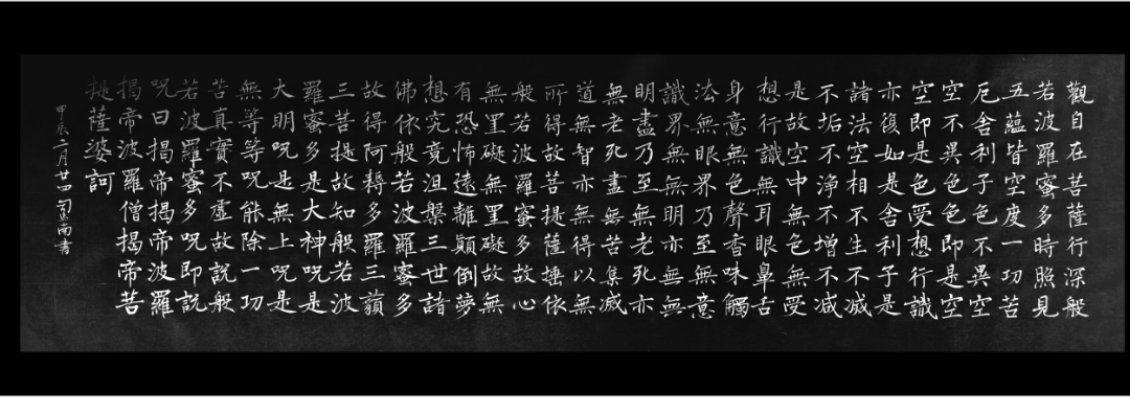 觀自在菩薩行深般
若波羅蜜多時照見
五蘊皆空度一切苦
厄舍利子色不異空
空不異色色即是空
空即是色受想行識
亦復如是舍利子是
諸法空相不生不滅
不垢不淨不增不減
是故空中無色無受
想行識無耳眼鼻舌
身意無色聲香味觸
法無眼界乃至無意
識界無無明亦無無
明盡乃至無老死亦
無老死盡無苦集滅
道無智亦無得以無
所得故菩提薩埵依
般若波羅蜜多故心
無罣礙無罣礙故無
有恐怖遠離顛倒夢
想究竟涅槃三世諸
佛依般若波羅蜜多
故得阿耨多羅三藐
三菩提故知般若波
羅蜜多是大神呪是
大明呪是無上呪是
無等等呪能除一切
苦真實不虛故説般
若波羅蜜多呪即説
呪曰揭帝揭帝波羅
揭帝波羅僧揭帝菩
提薩婆訶
甲辰二月廿四書